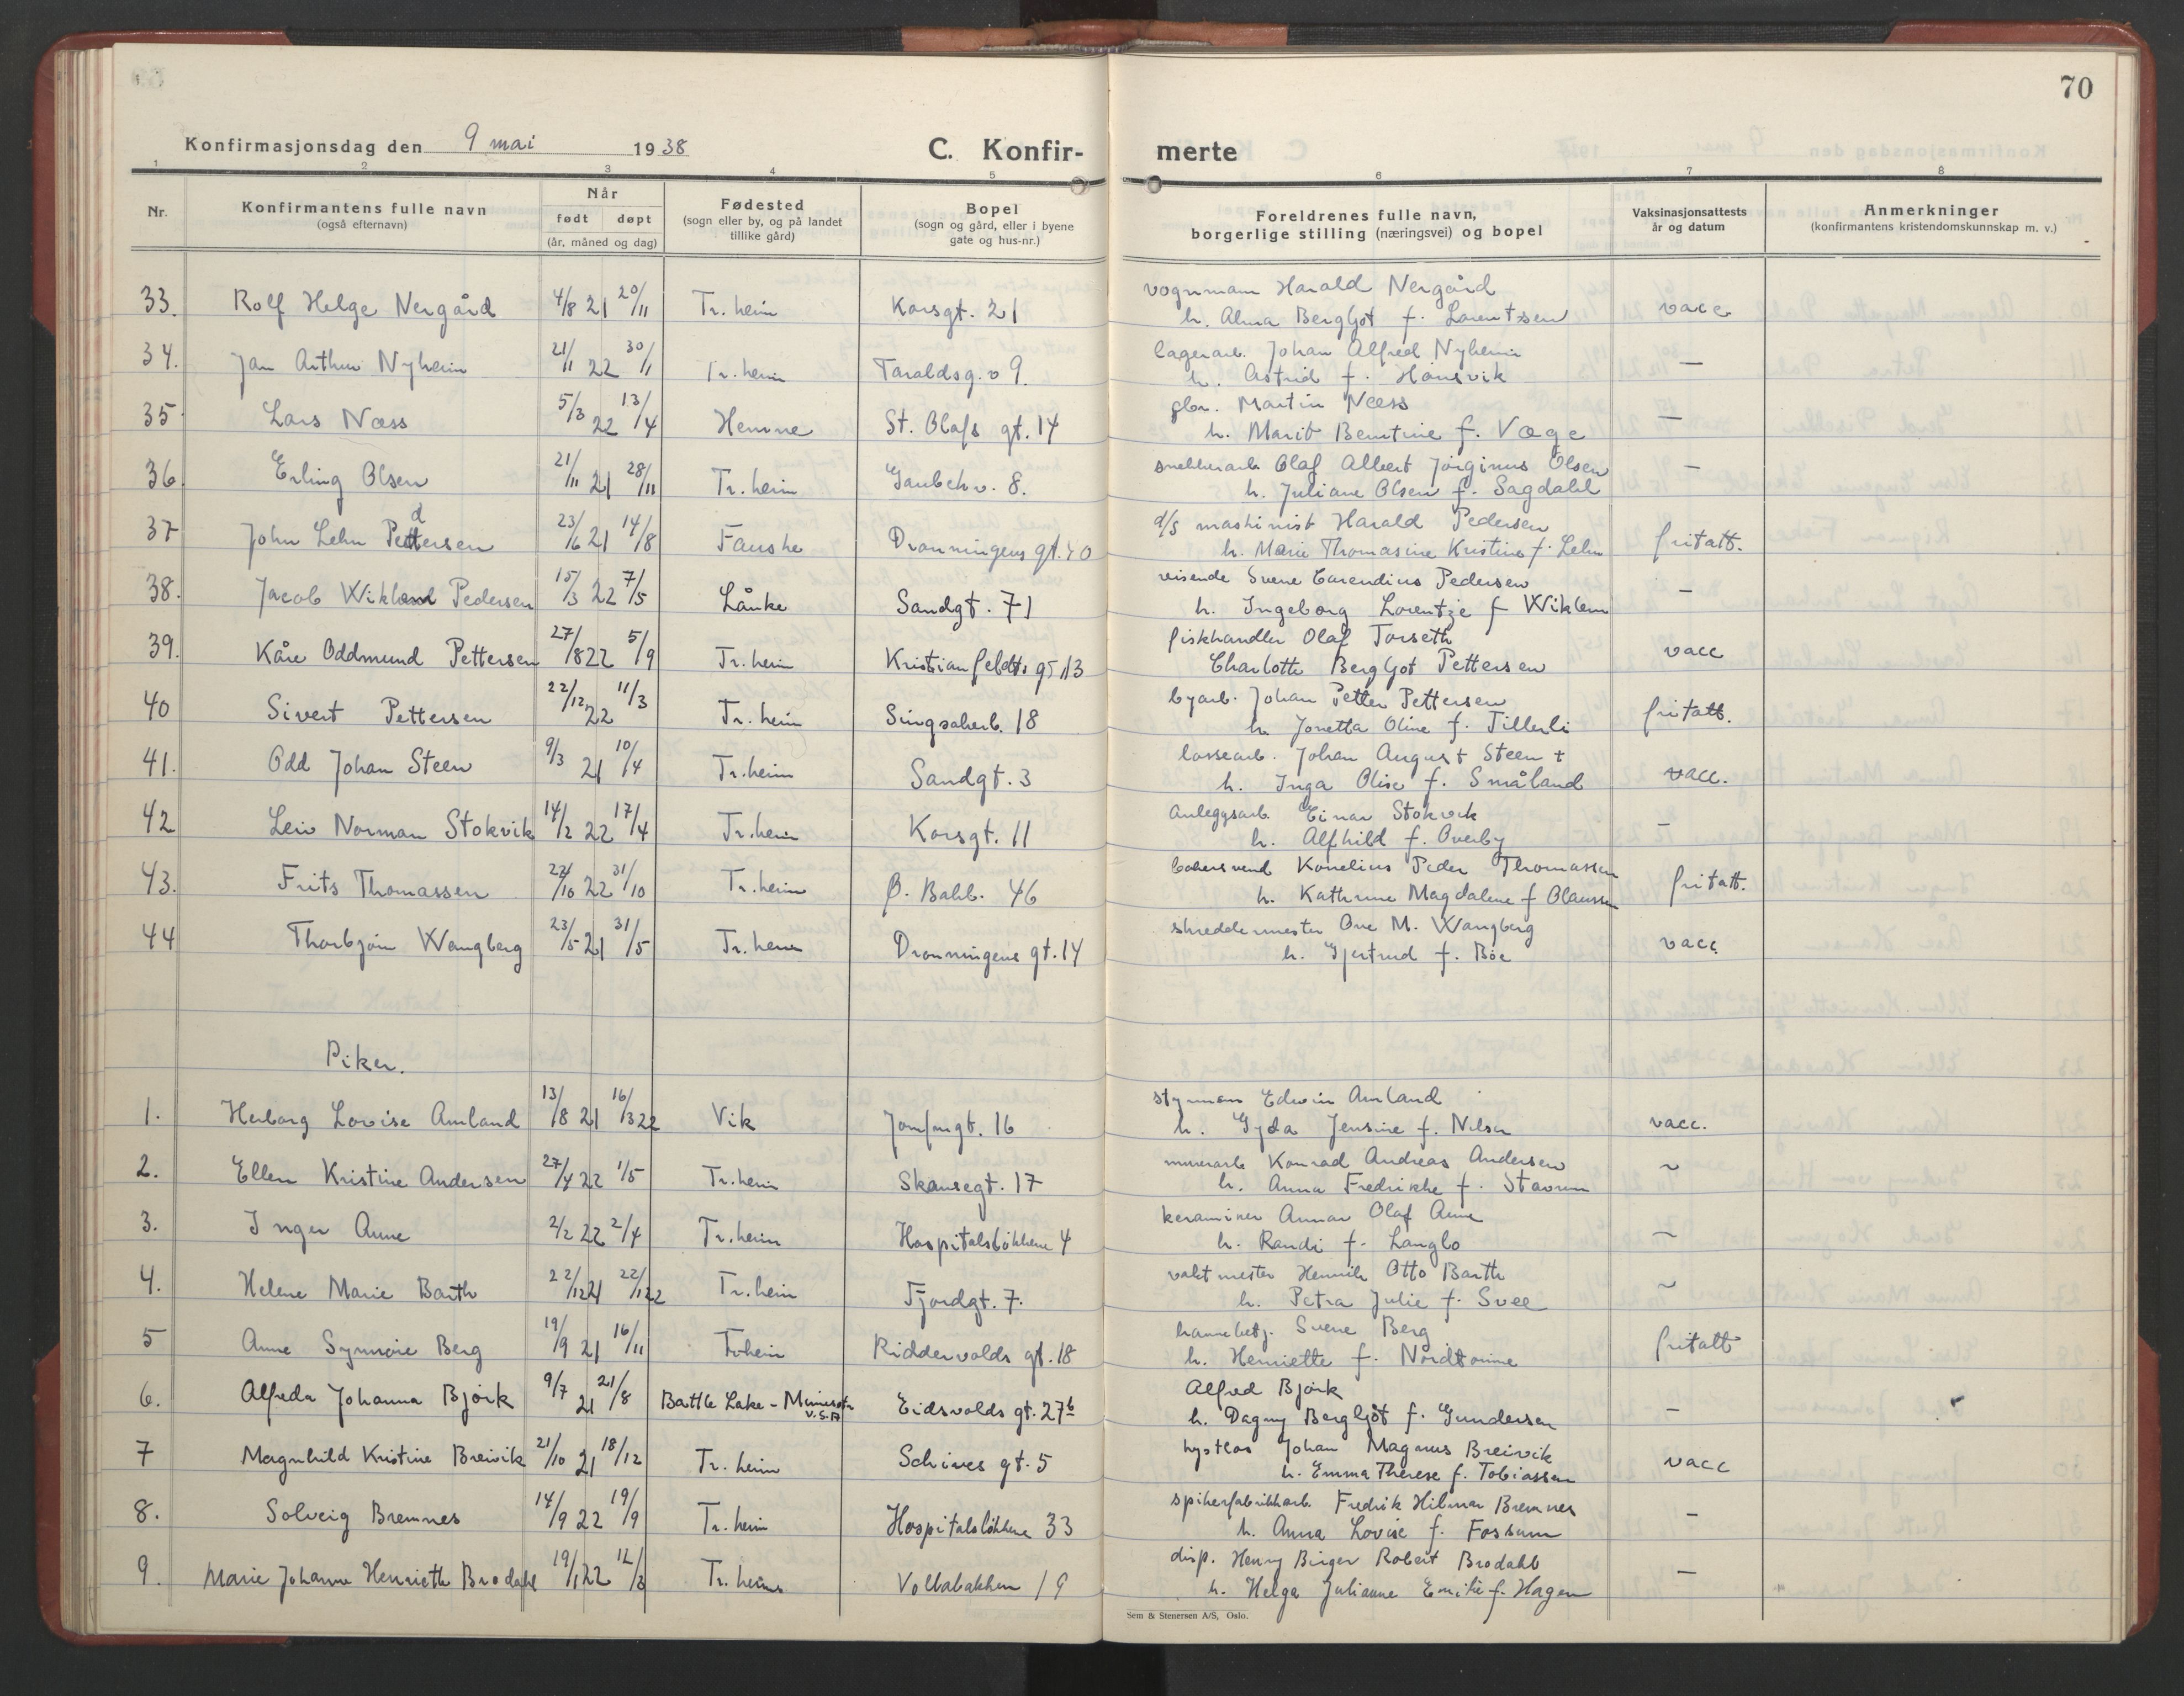 70
Konfirmasjonsdag den 9 mai 1938
C. Konfir-
merte
1 2 3 4 5 6 7 8
Nr.
Konfirmantens fulle navn
(også efternavn)
Når
født døpt
(år, måned og dag)
Fødested
(sogn eller by, og på landet
tillike gård)
Bopel
(sogn og gård, eller i byene
gate og hus-nr.)
Foreldrenes fulle navn,
borgerlige stilling (næringsvei) og bopel
Vaksinasjonsattests
år og datum
Anmerkninger
(konfirmantens kristendomskunnskap m. v.)
33. Rolf Helge Nergård 4/8 21 20/11 Tr.heim Korsgt. 21 vognmann Harald Nergård vacc
h. Alma Bergljot f. Lorentzen
34. Jan Arthur Nyheim 21/11 22 30/1 Tr.heim Taraldsg.v 9. lagerarb. Johan Alfred Nyheim —
h. Astrid f. Hansvik
35 Lars Næss 5/3 22 13/4 Hemne St. Olafs gt. 14 gbr. Martin Næss —
h. Marit Berntine f. Væge
36 Erling Olsen 21/11 21 28/11 Tr.heim Gaubekv. 8. snekkerarb Olaf Albert Jørginus Olsen —
h. Juliane Olsen f. Sagdahl
37 John Lehn Pedersen 23/6 21 14/8 Fauske Dronningens gt. 40 d/s maskinist Harald Pedersen fritatt.
h. Marie Thomasine Kristine f. Lehn
38. Jacob Wiklem Pedersen 15/3 22 7/5 Lånke Sandgt. 71 reisende Svene Carendius Pedersen —
h. Ingeborg Lorentze f Wiklem
39. Kåre Oddmund Pettersen 27/8 22 5/9 Tr.heim Kristianfeldts gt 13 fiskhandler Olaf Torseth vacc
Charlotte Bergljot Pettersen
40 Sivert Pettersen 22/12 22 11/3 Tr.heim Singsakerb. 18 byarb. Johan Petter Pettersen fritatt.
h. Jonetta Oline f. Tillerli
41. Odd Johan Steen 9/3 21 10/4 Tr.heim Sandgt. 3 lossearb. Johan August Steen + vacc.
h. Inga Olise f. Småland
42 Leiv Norman Stokvik 14/2 22 17/4 Tr.heim Korsgt. 11 Anleggsarb. Einar Stokvik —
h. Alfhild f. Overby
43. Frits Thomassen 22/10 22 31/10 Tr.heim Ø. Bakl. 46 bakersvend Kornelius Peder Thomassen fritatt.
h. Kathrine Magdalene f Olaussen
44 Thorbjørn Wangberg 23/5 21 31/5 Tr.heim Dronningens gt. 14 skreddermester Ove M. Wangberg vacc
h. Gjertrud f. Bøe
Piker.
1. Herborg Lovise Amland 13/8 21 16/3 22 Vik Jomfrugt. 16 styrmann Edwin Amland vacc.
h. Gyda Jensine f. Nilsen
2. Ellen Kristine Andersen 27/4 22 1/5 Tr.heim Skansegt. 17 murerarb Konrad Andreas Andersen ~
h. Anna Fredrikke f. Stavrum
3. Inger Aune 2/2 22 2/4 Tr.heim Hospitalsløkkene 4 keramiker Annar Olaf Aune ~
h. Randi f. Langlo
4. Helene Marie Barth 22/12 21 22/1 22 Tr.heim Fjordgt. 7. vaktmester Henrik Otto Barth ~
h. Petra Julie f. Svee
5 Anne Synnøve Berg 19/9 21 16/11 Trheim Riddervolds gt. 18 havnebetj. Svene Berg fritatt
h. Henriette f. Nordtømme
6. Alfreda Johanna Bjørk 9/7 21 21/8 Battle Lake - Minnesota U.S.A Eidsvolds gt. 27b Alfred Bjørk —
h. Dagny Bergljot f. Gundersen
7 Magnhild Kristine Breivik 21/10 21 18/12 Tr.heim Schives gt. 5 bestløs Johan Magnus Breivik vacc
h. Emma Therese f. Tobiassen
8. Solveig Bremnes 14/9 22 19/9 Tr.heim Hospitalsløkkene 33 spikerfabrikkarb. Fredrik Hilmar Bremnes —
h. Anna Lovise f. Fossum
9. Marie Johanne Henriette Brodahl 19/1 22 12/3 Tr.heim Vollabakken 19 disp. Henry Birger Robert Brodahl —
h. Helga Julianne Emilie f. Hagen
Sem & Stenersen A/S, Oslo.